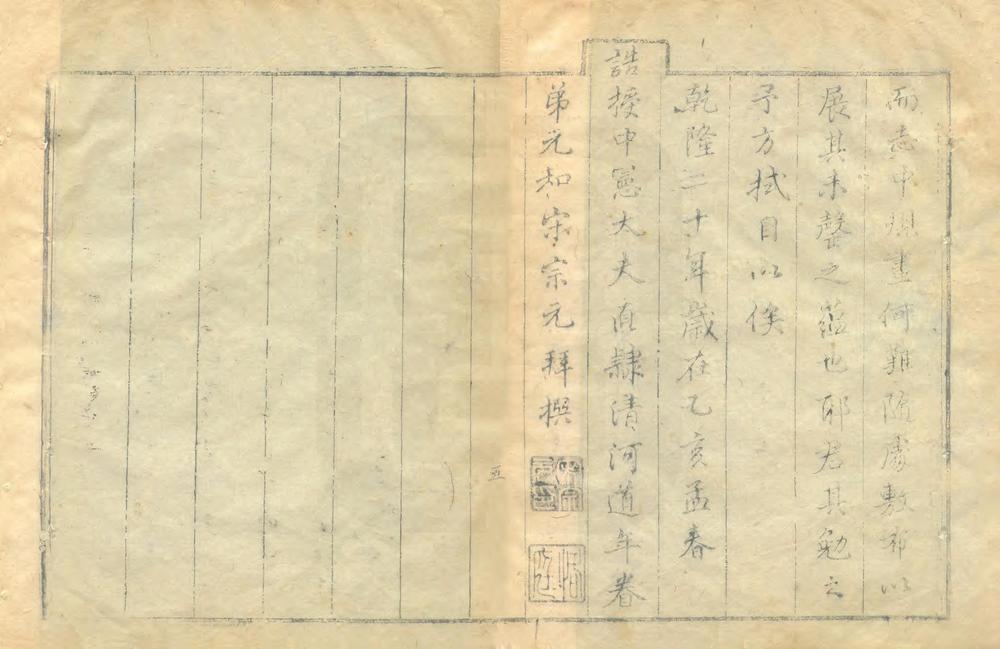 而志中規畫何難隨處敷布以
展其未罄之蘊也耶君其勉之
予方拭目以俟
乾隆二十年歲在乙亥孟春
誥授中憲大夫直隸清河道年眷
弟元和宋宗元拜撰
五